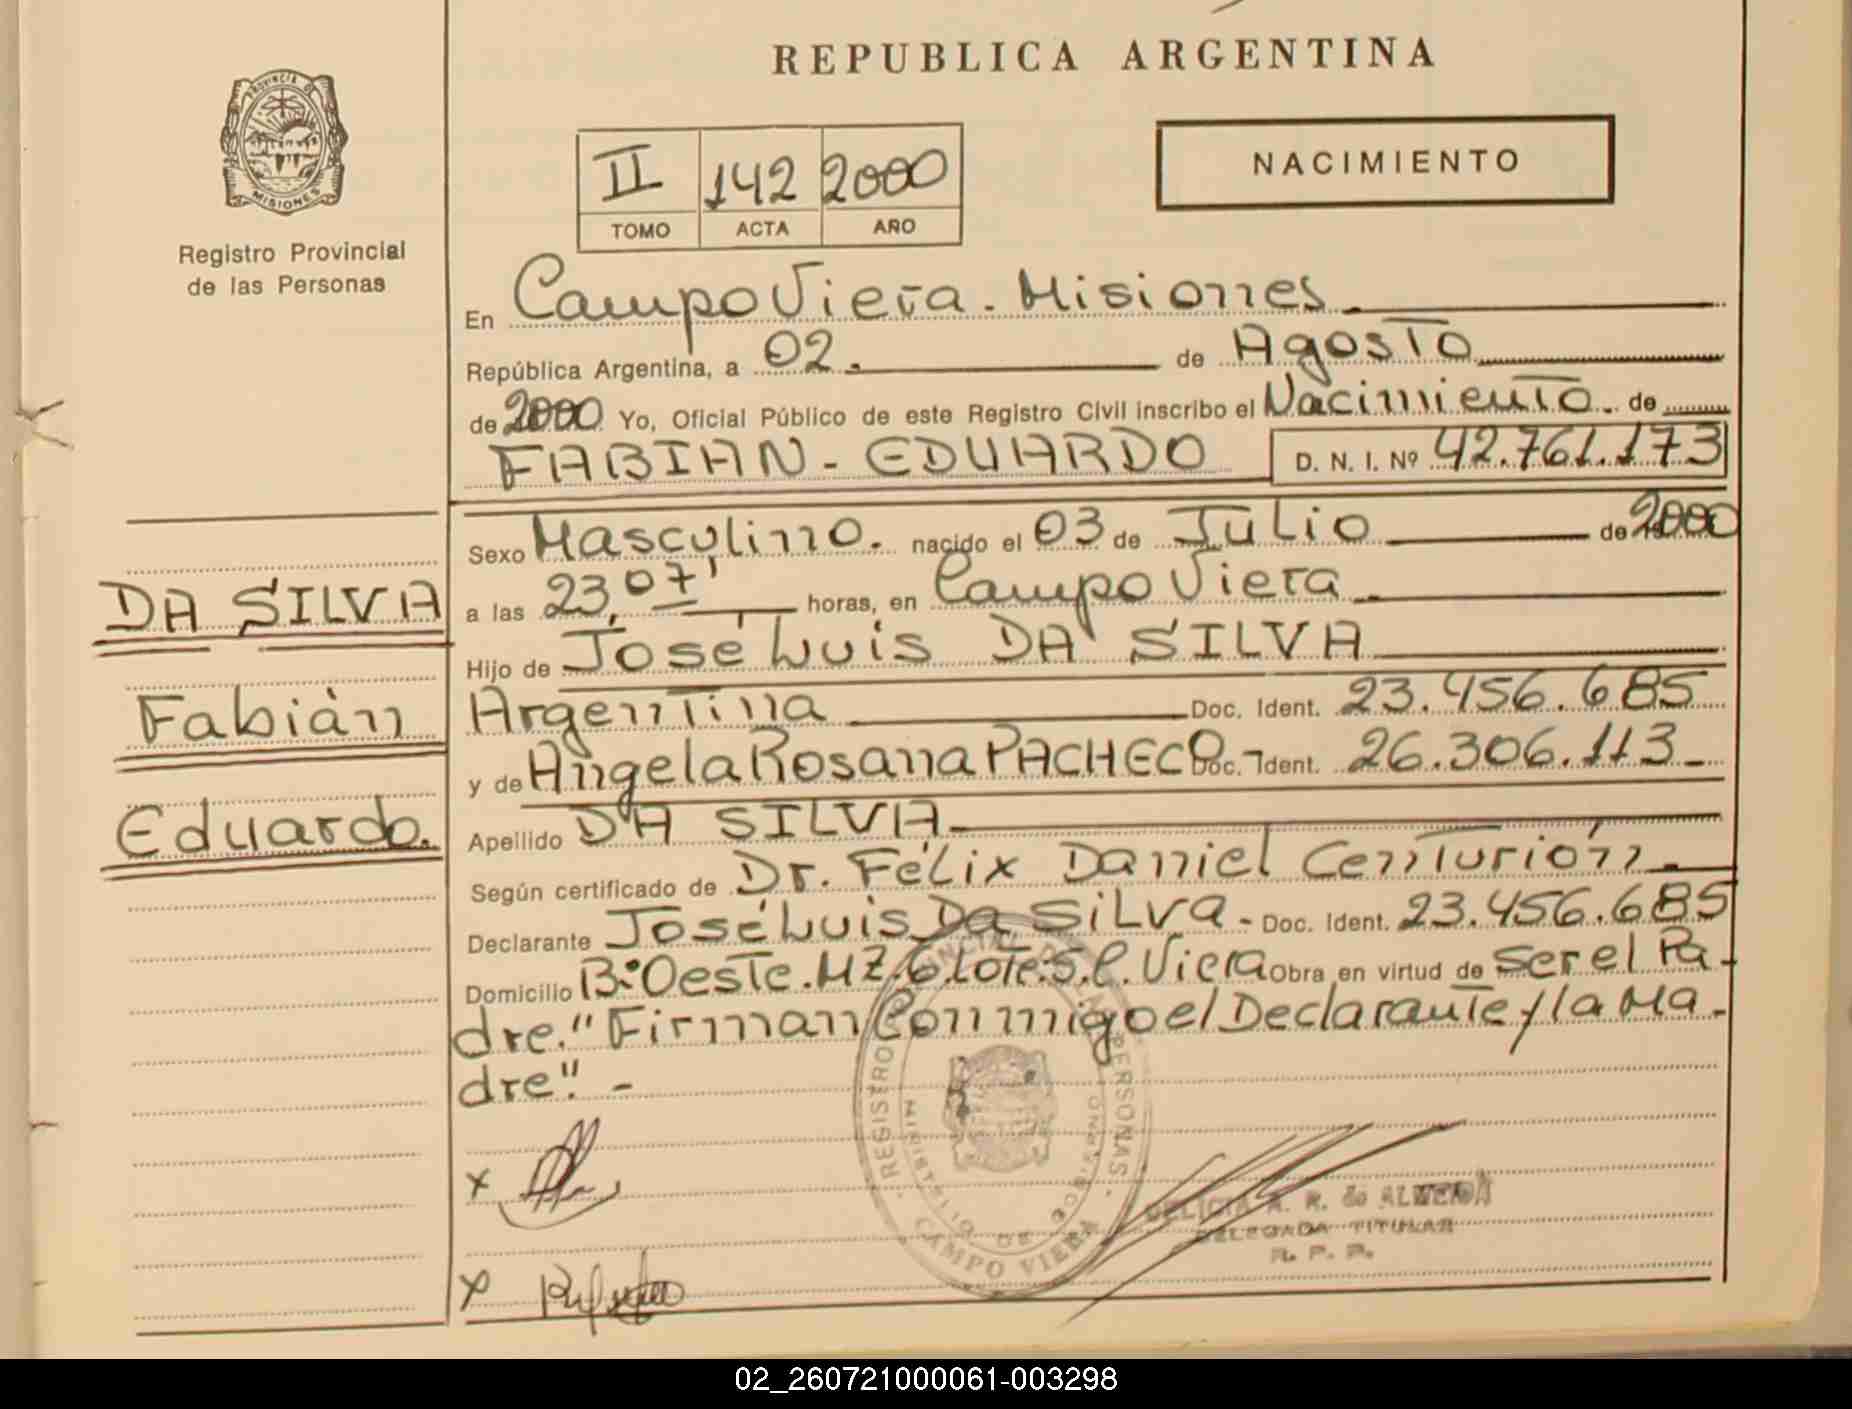 REPUBLICA ARGENTINA
PROVINCIA DE
MISIONES
Registro Provincial
de las Personas
NACIMIENTO
II 142 2000
TOMO ACTA AÑO
En Campo Viera - Misiones.
República Argentina, a 02. de Agosto
de 2000 Yo, Oficial Público de este Registro Civil inscribo el Nacimiento. de
FABIAN - EDUARDO D. N. I. Nº 42.761.173
Sexo Masculino. nacido el 03 de Julio de 2000
a las 23,07' horas, en Campo Viera
Hijo de José Luis DA SILVA
Argentina Doc. Ident. 23.456.685
y de Angela Rosana PACHECO Doc. Ident. 26.306.113-
Apellido DA SILVA-
Según certificado de Dr. Félix Daniel Centurión-
Declarante José Luis Da Silva- Doc. Ident. 23.456.685
Domicilio Bº Oeste. MZ.6.Lote:5.C.Viera Obra en virtud de Ser el Pa-
dre." Firman Conmigo el Declarante y la Ma-
dre". -
DA SILVA
Fabián
Eduardo.
x
x
REGISTRO PROVINCIAL DE LAS PERSONAS
CAMPO VIERA
DELICIA R. R. de ALMEIDA
DELEGADA TITULAR
R. P. P.
02_260721000061-003298